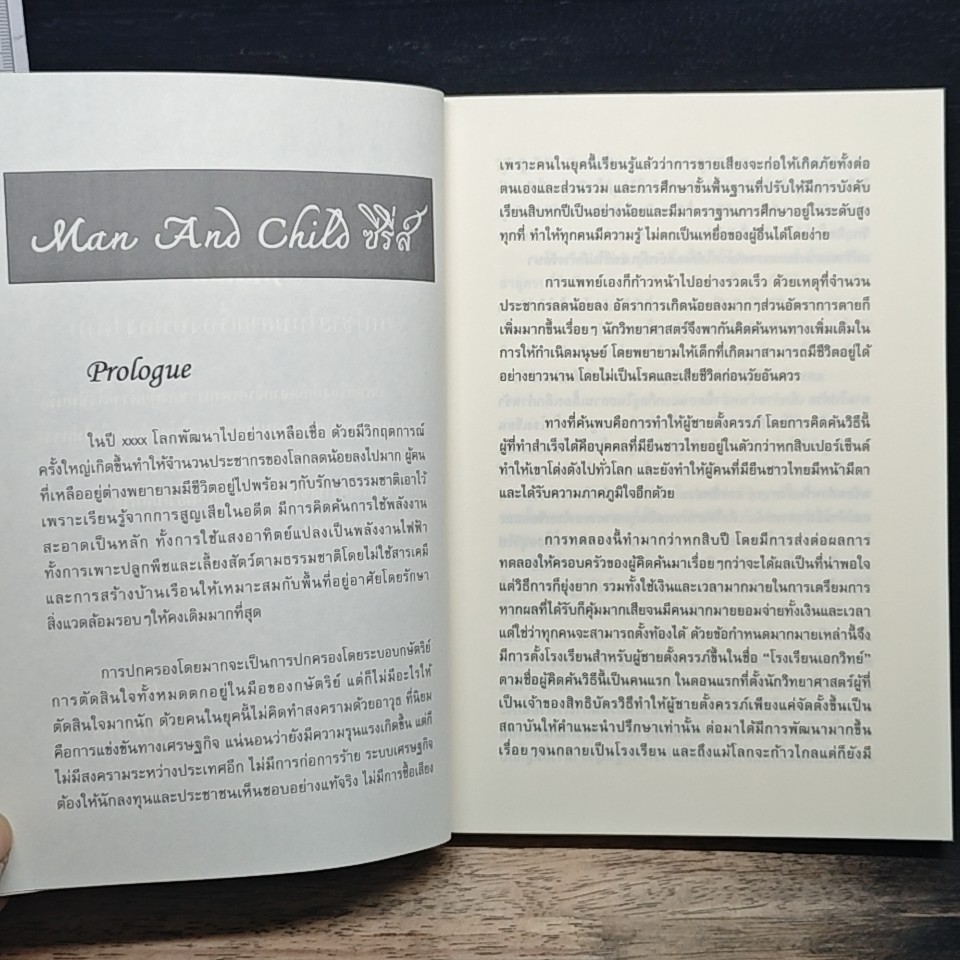 Man And Child ซีรี่ส์
Prologue
ในปี xxxx โลกพัฒนาไปอย่างเหลือเชื่อ ด้วยมีวิกฤตการณ์
ครั้งใหญ่เกิดขึ้นทำให้จำนวนประชากรของโลกลดน้อยลงไปมาก ผู้คน
ที่เหลืออยู่ต่างพยายามมีชีวิตอยู่ไปพร้อมๆกับรักษาธรรมชาติเอาไว้
เพราะเรียนรู้จากการสูญเสียในอดีต มีการคิดค้นการใช้พลังงาน
สะอาดเป็นหลัก ทั้งการใช้แสงอาทิตย์แปลงเป็นพลังงานไฟฟ้า
ทั้งการเพาะปลูกพืชและเลี้ยงสัตว์ตามธรรมชาติโดยไม่ใช้สารเคมี
และการสร้างบ้านเรือนให้เหมาะสมกับพื้นที่อยู่อาศัยโดยรักษา
สิ่งแวดล้อมรอบๆให้คงเดิมมากที่สุด
การปกครองโดยมากจะเป็นการปกครองโดยระบอบกษัตริย์
การตัดสินใจทั้งหมดตกอยู่ในมือของกษัตริย์ แต่ก็ไม่มีอะไรให้
ตัดสินใจมากนัก ด้วยคนในยุคนี้ไม่คิดทำสงครามด้วยอาวุธ ที่นิยม
คือการแข่งขันทางเศรษฐกิจ แน่นอนว่ายังมีความรุนแรงเกิดขึ้น แต่ก็
ไม่มีสงครามระหว่างประเทศอีก ไม่มีการก่อการร้าย ระบบเศรษฐกิจ
ต้องให้นักลงทุนและประชาชนเห็นชอบอย่างแท้จริง ไม่มีการซื้อเสียง
เพราะคนในยุคนี้เรียนรู้แล้วว่าการขายเสียงจะก่อให้เกิดภัยทั้งต่อ
ตนเองและส่วนรวม และการศึกษาขั้นพื้นฐานที่ปรับให้มีการบังคับ
เรียนสิบหกปีเป็นอย่างน้อยและมีมาตราฐานการศึกษาอยู่ในระดับสูง
ทุกที่ ทำให้ทุกคนมีความรู้ ไม่ตกเป็นเหยื่อของผู้อื่นได้โดยง่าย
การแพทย์เองก็ก้าวหน้าไปอย่างรวดเร็ว ด้วยเหตุที่จำนวน
ประชากรลดน้อยลง อัตราการเกิดน้อยลงมากๆส่วนอัตราการตายก็
เพิ่มมากขึ้นเรื่อยๆ นักวิทยาศาสตร์จึงพากันคิดค้นหนทางเพิ่มเติมใน
การให้กำเนิดมนุษย์ โดยพยายามให้เด็กที่เกิดมาสามารถมีชีวิตอยู่ได้
อย่างยาวนาน โดยไม่เป็นโรคและเสียชีวิตก่อนวัยอันควร
ทางที่ค้นพบคือการทำให้ผู้ชายตั้งครรภ์ โดยการคิดค้นวิธีนี้
ผู้ที่ทำสำเร็จได้คือบุคคลที่มียีนชาวไทยอยู่ในตัวกว่าหกสิบเปอร์เซ็นต์
ทำให้เขาโด่งดังไปทั่วโลก และยังทำให้ผู้คนที่มียีนชาวไทยมีหน้ามีตา
และได้รับความภาคภูมิใจอีกด้วย
การทดลองนี้ทำมากว่าหกสิบปี โดยมีการส่งต่อผลการ
ทดลองให้ครอบครัวของผู้คิดค้นมาเรื่อยๆกว่าจะได้ผลเป็นที่น่าพอใจ
แต่วิธีการก็ยุ่งยาก รวมทั้งใช้เงินและเวลามากมายในการเตรียมการ
หากผลที่ได้รับก็คุ้มมากเสียจนมีคนมากมายยอมจ่ายทั้งเงินและเวลา
แต่ใช่ว่าทุกคนจะสามารถตั้งท้องได้ ด้วยข้อกำหนดมากมายเหล่านี้จึง
มีการตั้งโรงเรียนสำหรับผู้ชายตั้งครรภ์ขึ้นในชื่อ “โรงเรียนเอกวิทย์”
ตามชื่อผู้คิดค้นวิธีนี้เป็นคนแรก ในตอนแรกที่ตั้งนักวิทยาศาสตร์ผู้ที่
เป็นเจ้าของสิทธิบัตรวิธีทำให้ผู้ชายตั้งครรภ์เพียงแค่จัดตั้งขึ้นเป็น
สถาบันให้คำแนะนำปรึกษาเท่านั้น ต่อมาได้มีการพัฒนามากขึ้น
เรื่อยๆจนกลายเป็นโรงเรียน และถึงแม้โลกจะก้าวไกลแต่ก็ยังมี